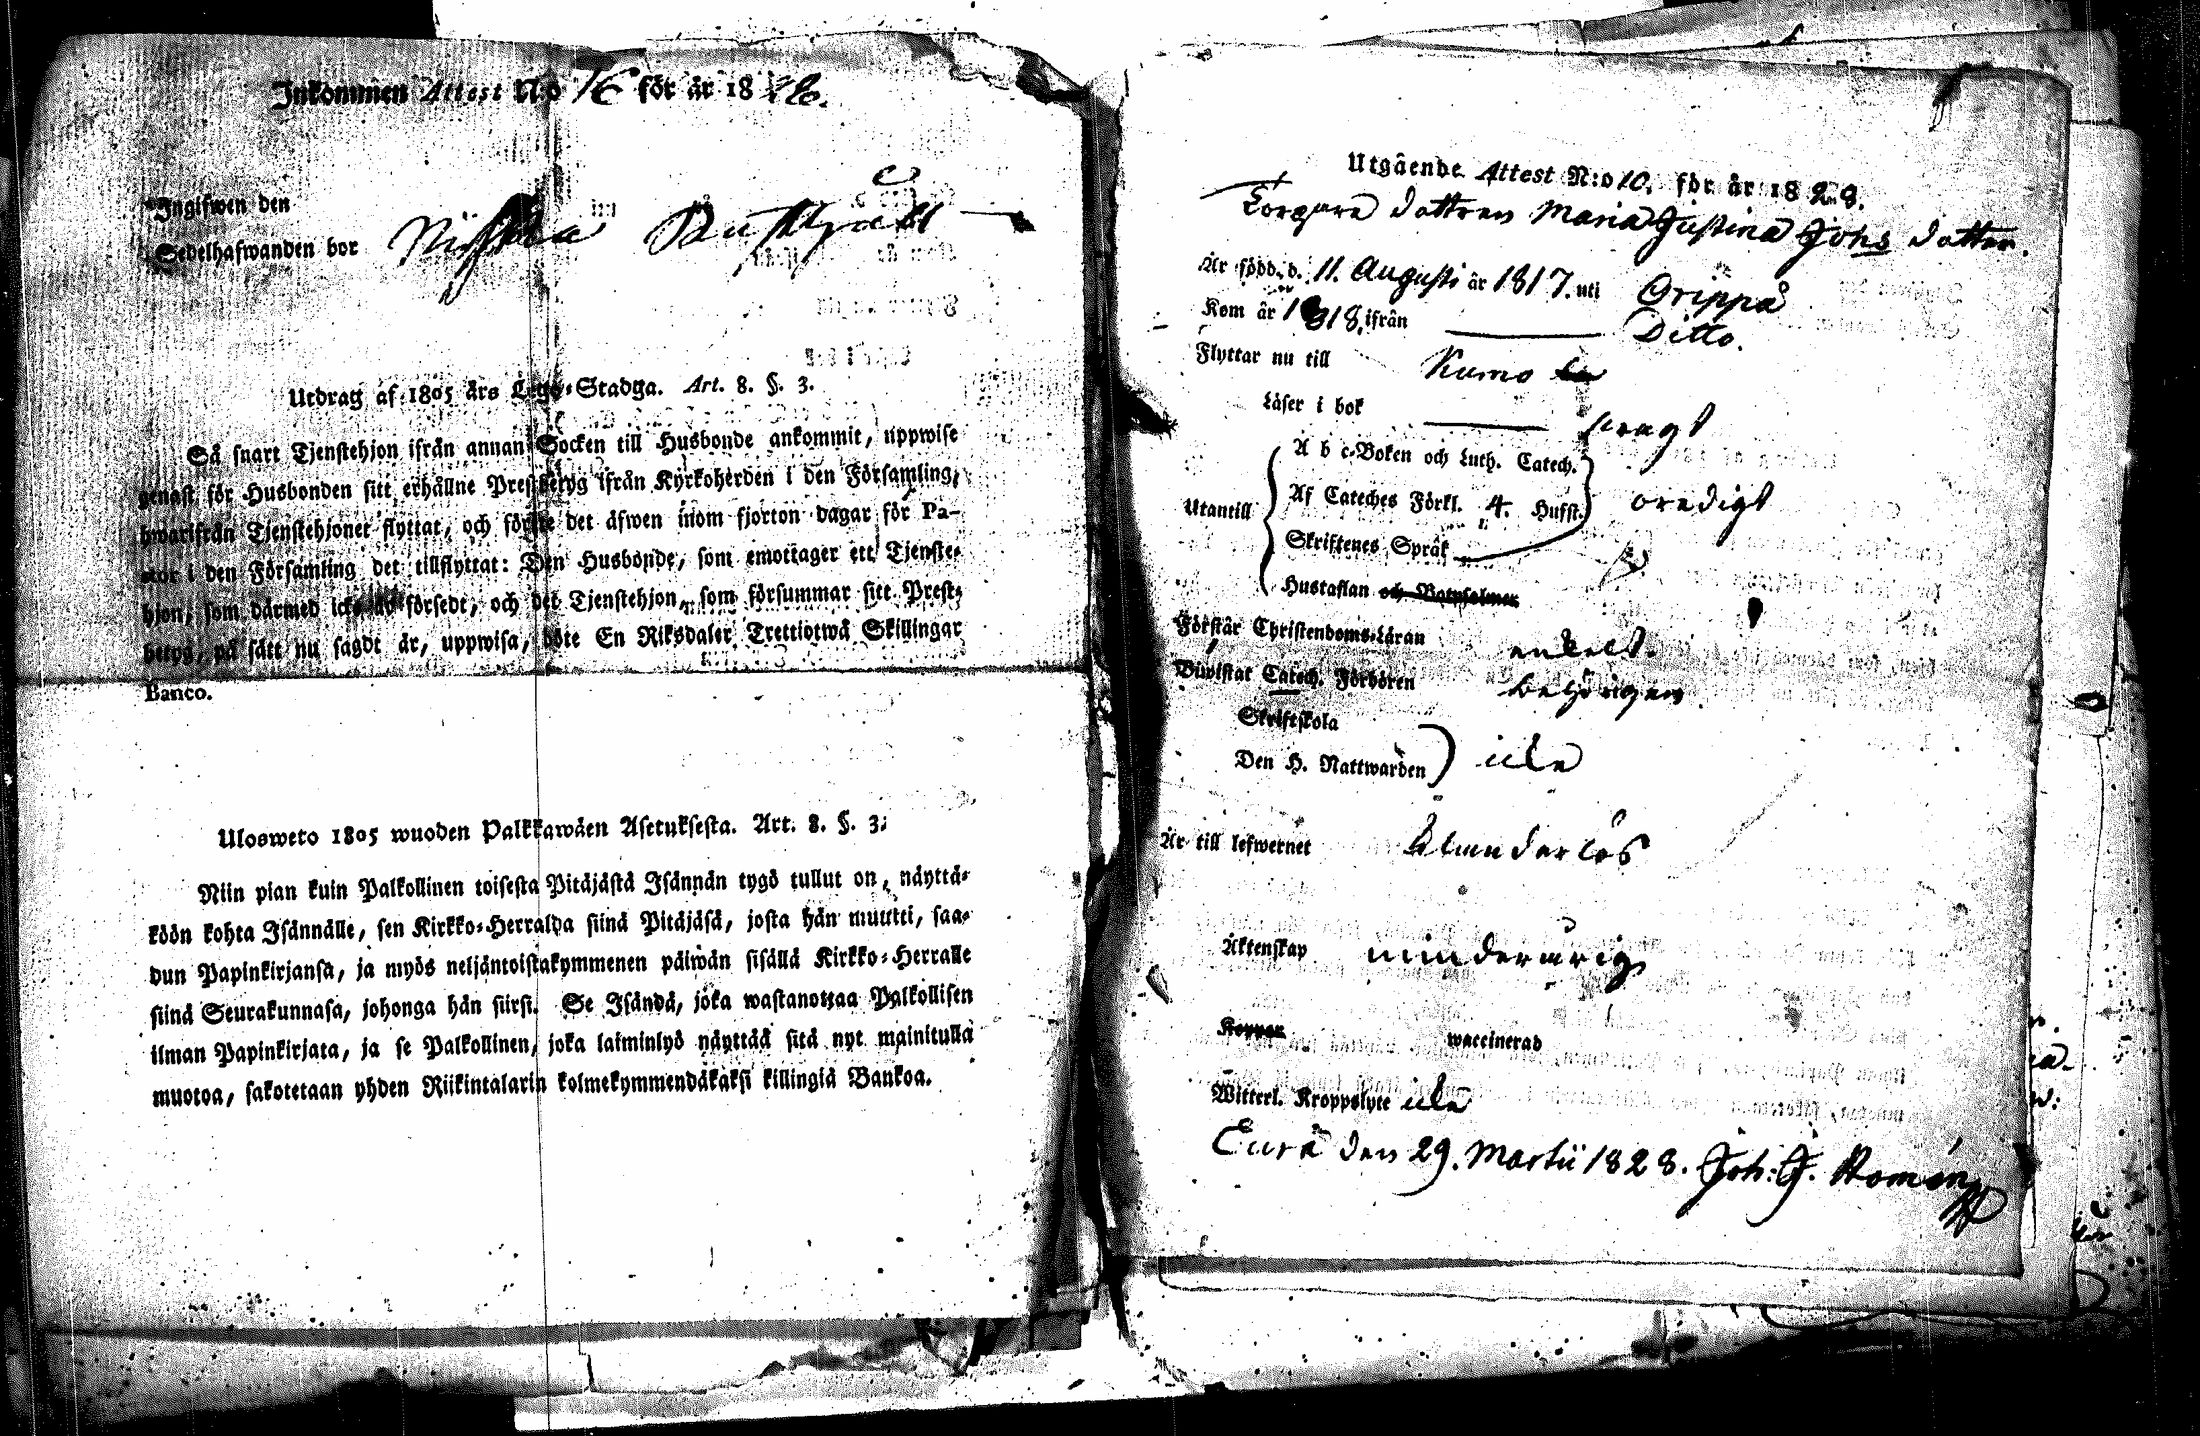 Inkommen Attest N:o 76 för år 18
Ingifwen den
Sedelhafwanden bor
Utdrag af 1805 års Lego-Stadga. Art. 8. §. 3.
Så snart Tjenstehjon ifrån annan Socken till Husbonde ankommit, uppwise
genast för Husbonden sitt erhållne Prestbetyg ifrån Kyrkoherden i den Församling,
hwarifrån Tjenstehjonet flyttat, och förete det äfwen inom fjorton dagar för Pa-
stor i den Församling det tillflyttat: Den Husbonde, som emottager ett Tjenste-
hjon, som därmed icke är försedt, och det Tjenstehjon, som försummar sitt Prest-
betyg, på sätt nu sagdt är, uppwisa, böte En Riksdaler Trettiotwå Skillingar
Banco.
Ulosweto 1805 wuoden Palkkawäen Asetuksesta. Art. 8. §. 3.
Niin pian kuin Palkollinen toisesta Pitäjästä Isännän tygö tullut on, näyttä-
köön kohta Isännälle, sen Kirkko-Herralda siinä Pitäjäsä, josta hän muutti, saa-
dun Papinkirjansa, ja myös neljäntoistakymmenen päiwän sisällä Kirkko-Herralle
siinä Seurakunnasa, johonga hän siirsi. Se Isändä, joka wastanottaa Palkollisen
ilman Papinkirjata, ja se Palkollinen, joka laiminlyö näyttää sitä nyt mainitulla
muotoa, sakotetaan yhden Riikintalarin kolmekymmendäkaksi killingiä Bankoa.
Utgående Attest N:o 10. för år 1828.
Torpare dottren Maria Justina Johs dotter.
Är född d. 11. Augusti år 1817. uti Orippä
Kom år 1818, ifrån Ditto.
Flyttar nu till Kumo
Läser i bok svagt
A b c-Boken och Luth. Catech.
Utantill Af Cateches Förkl. 4. Hufst. oredigt
Skriftenes Språk
Hustaflan och Botpsalmer
Förstår Christendoms-Läran enkelt.
Biwistat Catech. Förhören behörigen
Skriftskola
Den H. Nattwarden icke
Är till lefwernet klanderlös
Äktenskap minderårig
Koppor waccinerad
Witterl. Kroppslyte icke
Eura den 29. Martii 1828. Joh: G. Romén